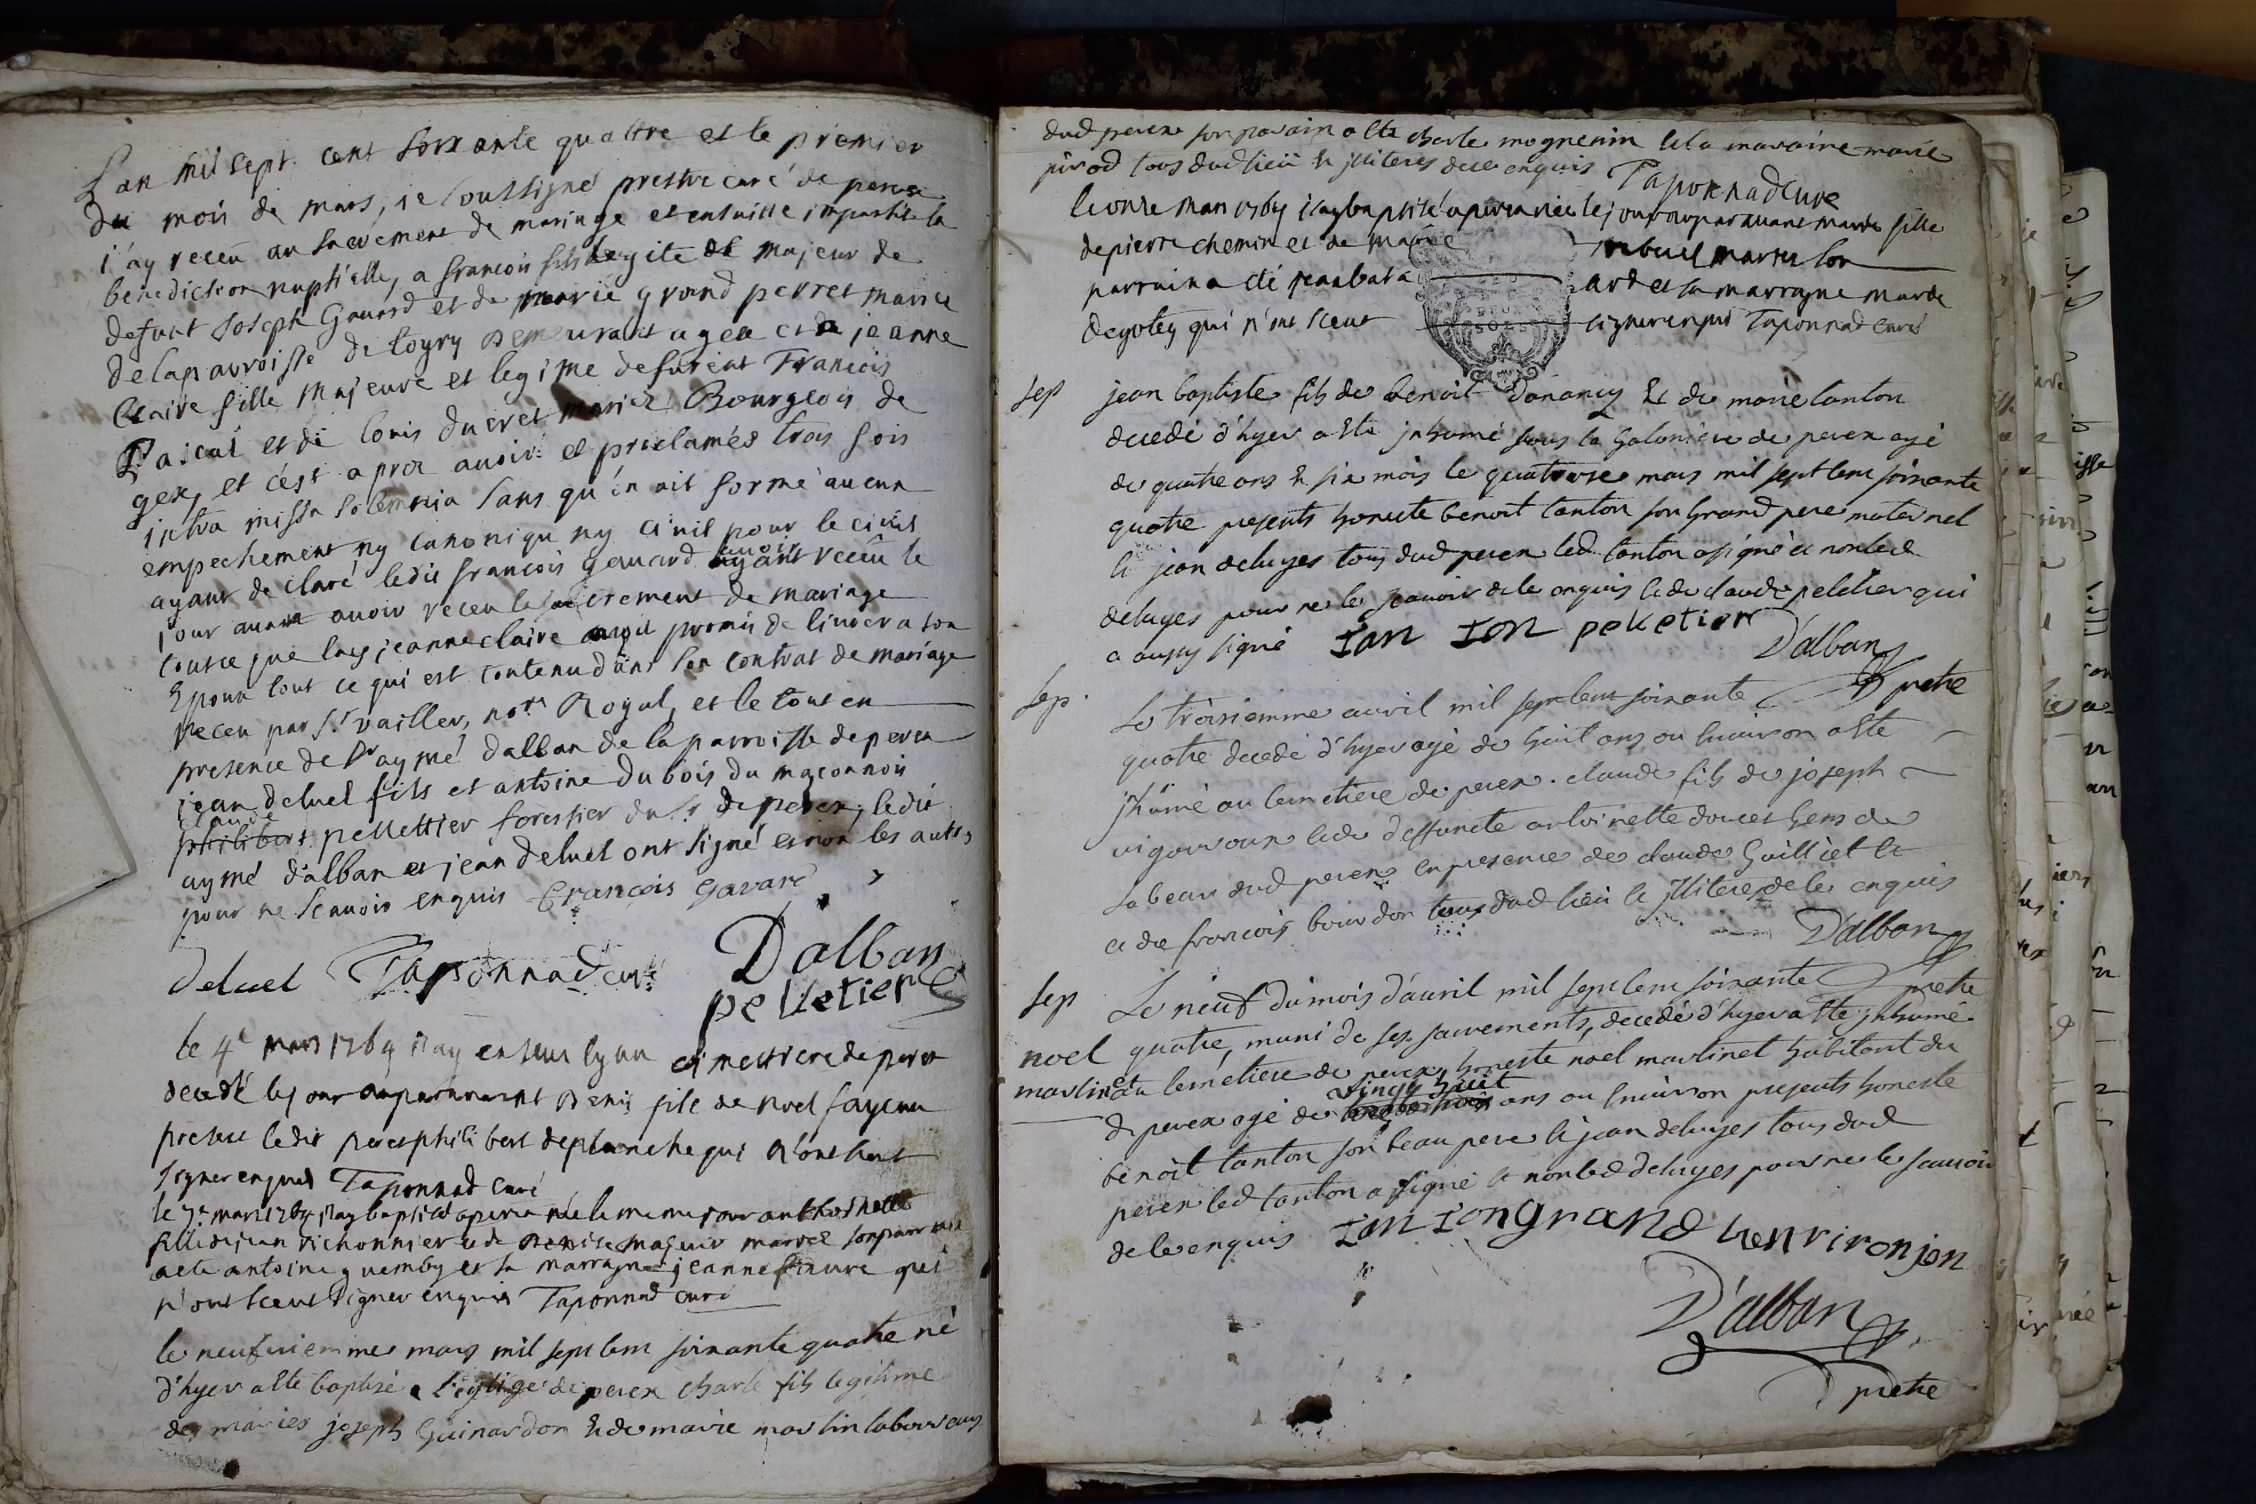 L'an mil sept cent soixante quattre et le premier
du mois de mars, je soussigné prestre curé de perex
j'ay receu au sacrement de mariage et ensuitte impartit la
benediction nuptielle, a françois fils legite et majeur de
defunt Joseph Gavard et de marie grand perret maries
de la parroisse de logry demeurant a gex et de jeanne
Claire fille majeure et legime defunt François
Pascal et de louis ducret mariez Bourgeois de
gex, et c'est aprex avoir et proclamés trois fois
intra missa solemnia sans qu'on ait formé aucun
empechement ny canonique ny civil pour le civil
ayant declaré ledit françois gavard avoir receu le
jour avant avoir receu le sacrement de mariage
tout ce que lad jeanne claire avoit promis de livrer a son
Epoux tout ce qui est contenu dans son contrat de mariage
receu par Sr vailler, notre Royal, et le tout en
presence de Sr aymé dalban de la parroisse de perex
jean deluel fils et antoine dubois du maçonnois
claude
philibert pellettier forestier du Sr de perex, ledit
aymé d'alban et jean deluel ont signé et non les autres
pour ne sçavoir enquis François Gavard
Deluel Taponnad curé Dalban
pelletier
le 4e mars 1764 j'ay ensevely au cimettiere de perex
decedé le jour auparavant Denis fils de noel fayeux
presens ledit pere et philibert deplanche qui n'ont sceut
signer enquis Taponnad curé
le 7e mars 1764 j'ay baptisé a perex née le meme jour anthoinette
fille de jean richonnier et de Denise majeur mariez son parrain
a eté antoine guemby et sa marragne jeanne faure qui
n'ont sceut signer enquis Taponnad curé
le neufviemme mars mil sept cent soixante quatre né
d'hyer a êté baptisé a l'eglise de perex charle fils legitime
des mariés joseph Guinardon et de marie martin laboureurs
dud perex son parain a êté charle mognenin et la maraine marie
pivod tous dud lieu et illiterés de ce enquis Taponnad curé
le onze mars 1764 j'ay baptisé a perex née le jour auparavant marie fille
de pierre chemin et de marie rebuel mariés son
parrain a eté jean bata ard et sa marragne marie
degotey qui n'ont sceut signer enquis Taponnad curé
sep jean baptiste fils de benoit Donancy et de marie tanton
decedé d'hyer a êté inhumé sous la galonière de perex agé
de quatre ans et six mois le quatorze mars mil sept cent soixante
quatre presents honeste benoit tanton son grand pere maternel
et jean deluyes tous dud perex led tanton a signé et non led
deluyes pour ne le sçavoir de ce enquis et de claude peletier qui
a aussy signé tan ton pelletier
D'alban
prêtre
sep Le troisiemme avril mil sept cent soixante
quatre decedé d'hyer agé de huit ans ou environ a êté
inhumé au cemetiere de perex claude fils de joseph
vigouroux et de deffuncte antoinette doucet gens de
labeur dud perex en presence de claude Guilliet et
et de françois bourdon tous dud lieu et illiterés de ce enquis
D'alban
prêtre
sep Le neuf du mois d'avril mil sept cent soixante
noel quatre, muni de ses sacrements, decedé d'hyer a êté inhumé
martinet au cemetiere de perex, honeste noel martinet habitant du
vingt huit
d perex agé de ans ou environ presents honeste
benoit tanton son beau pere et jean deluyes tous dud
perex led tanton a signé et non led deluyes pour ne le sçavoir
de ce enquis tan ton grand henri ronjon
D'alban
prêtre